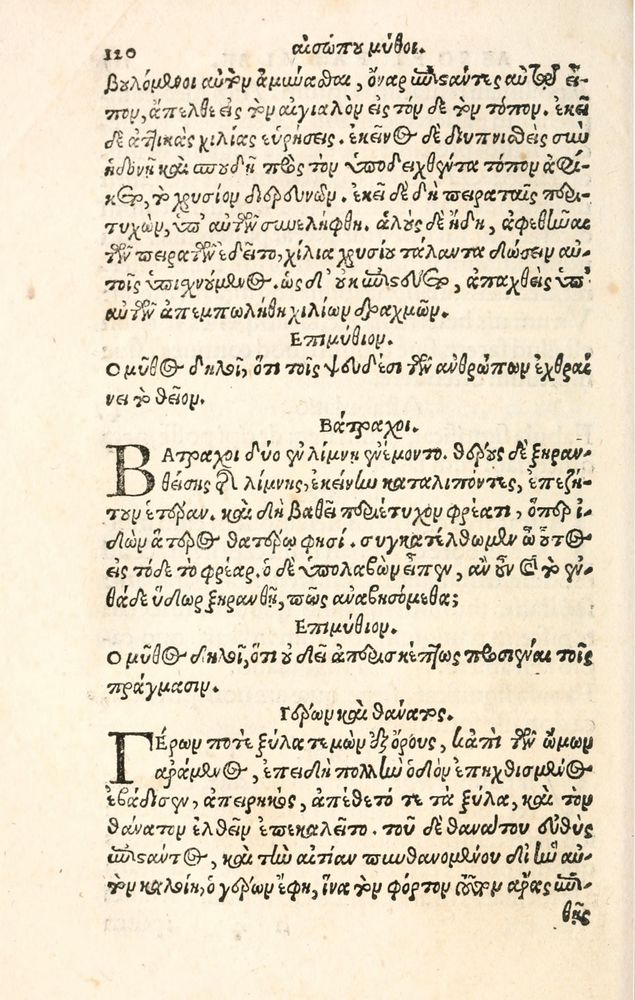 120
αἰσώπου μῦθοι.
βουλόμενοι αὐτὸν ἀμύνασθαι, ὄναρ ἐπιστάντες αὐτῷ εἶ-
πον, ἄπελθε εἰς τὸν αἰγιαλὸν εἰς τόν δε τὸν τόπον. ἐκεῖ
δὲ ἀττικὰς χιλίας εὑρήσεις. ἐκεῖνος δὲ διυπνισθεὶς σὺν
ἡδονῇ καὶ σπουδῇ πρὸς τὸν ὑποδειχθέντα τόπον ἀφί-
κετο, τὸ χρυσίον διερευνῶν. ἐκεῖ δὲ δὴ πειραταῖς περι-
τυχὼν, ὑπ' αὐτῶν συνελήφθη. ἁλοὺς δὲ ἤδη, ἀφεθῆναι
τῶν πειρατῶν ἐδεῖτο, χίλια χρυσίου τάλαντα δώσειν αὐ-
τοῖς ὑπισχνούμενος. ὡς δ' οὐκ ἐπιστεύετο, ἀπαχθεὶς ὑπ'
αὐτῶν ἀπεμπωλήθη χιλίων δραχμῶν.
Επιμύθιον.
Ο μῦθος δηλοῖ, ὅτι τοῖς ψευδέσι τῶν ἀνθρώπων ἐχθραί
νει τὸ θεῖον.
Βάτραχοι.
ΒΑτραχοι δύο ἐν λίμνῃ ἐνέμοντο. θέρους δὲ ξηραν-
θείσης τῆς λίμνης, ἐκείνην καταλιπόντες, ἐπεζή-
τουν ἑτέραν. καὶ δὴ βαθεῖ περιέτυχον φρέατι, ὅπερ ἰ-
δὼν ἅτερος θατέρῳ φησί. συγκατέλθωμεν ὦ οὗτος
εἰς τόδε τὸ φρέαρ. ὁ δὲ ὑπολαβὼν εἶπεν, ἂν οὖν καὶ τὸ ἐν-
θάδε ὕδωρ ξηρανθῇ, πῶς ἀναβησόμεθα;
Επιμύθιον.
Ο μῦθος δηλοῖ, ὅτι οὐ δεῖ ἀπερισκέπτως προσιέναι τοῖς
πράγμασιν.
Γέρων καὶ θάνατος.
ΓΕρων ποτὲ ξύλα τεμὼν ἐξ ὄρους, κἀπὶ τῶν ὤμων
ἀράμενος, ἐπειδὴ πολλὴν ὁδὸν ἐπηχθισμένος
ἐβάδισεν, ἀπειρηκὼς, ἀπέθετό τε τὰ ξύλα, καὶ τὸν
θάνατον ἐλθεῖν ἐπεκαλεῖτο. τοῦ δὲ θανάτου εὐθὺς
ἐπιστάντος, καὶ τὴν αἰτίαν πυνθανομένου δι' ἣν αὐ-
τὸν καλοίη, ὁ γέρων ἔφη, ἵνα τὸν φόρτον τοῦτον ἄρας ἐπι-
θῇς